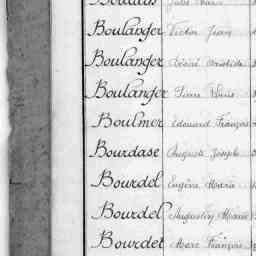 Boulanger Victor Jean
Boulanger Désiré Aristide
Boulanger Pierre
Boulmer Edouard François
Bourdase Auguste Joseph
Bourdel Eugène Marie
Bourdel Augustin Marie
Bourdet Marc François